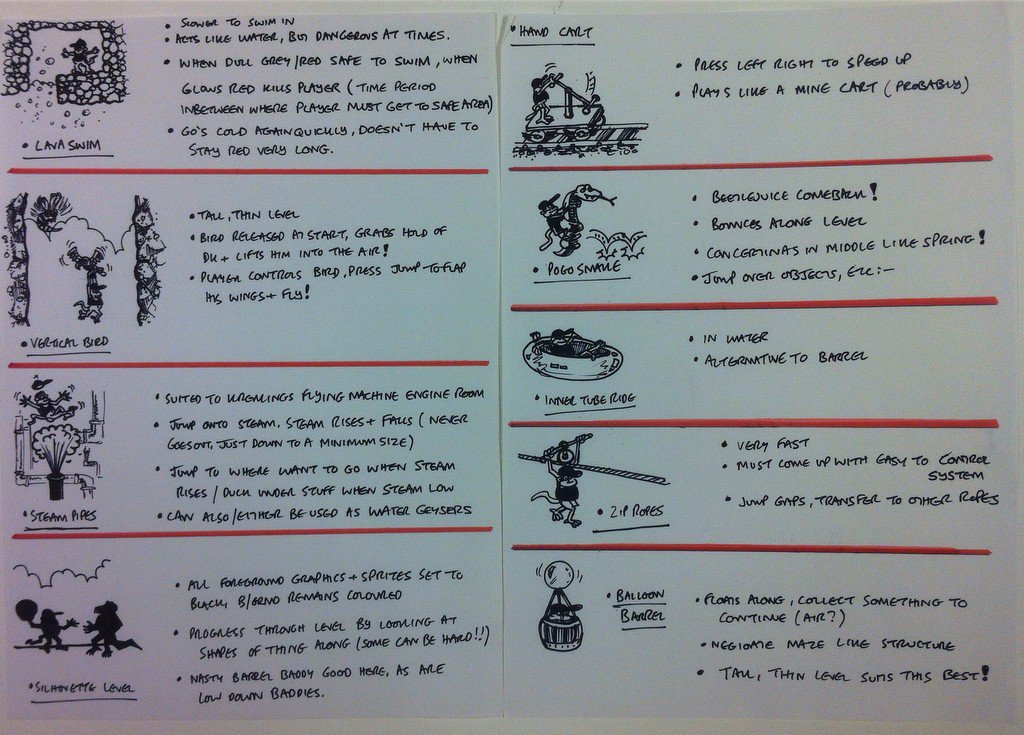 • SLOWER TO SWIM IN
• ACTS LIKE WATER, BUT DANGEROUS AT TIMES.
• WHEN DULL GREY/RED SAFE TO SWIM, WHEN
GLOWS RED KILLS PLAYER (TIME PERIOD
INBETWEEN WHERE PLAYER MUST GET TO SAFE AREA)
• GO'S COLD AGAIN QUICKLY, DOESN'T HAVE TO
STAY RED VERY LONG.
• LAVA SWIM
• TALL, THIN LEVEL
• BIRD RELEASED AT START, GRABS HOLD OF
DK + LIFTS HIM INTO THE AIR!
• PLAYER CONTROLS BIRD, PRESS JUMP TO FLAP
HIS WINGS + FLY!
• VERTICAL BIRD
• SUITED TO KREMLINGS FLYING MACHINE ENGINE ROOM
• JUMP ONTO STEAM. STEAM RISES + FALLS (NEVER
GOES OUT, JUST DOWN TO A MINIMUM SIZE)
• JUMP TO WHERE WANT TO GO WHEN STEAM
RISES / DUCK UNDER STUFF WHEN STEAM LOW
• CAN ALSO/EITHER BE USED AS WATER GEYSERS
• STEAM PIPES
• ALL FOREGROUND GRAPHICS + SPRITES SET TO
BLACK, B/GRND REMAINS COLOURED
• PROGRESS THROUGH LEVEL BY LOOKING AT
SHAPES OF THING ALONG (SOME CAN BE HARD!!)
• NASTY BARREL BADDY GOOD HERE, AS ARE
LOW DOWN BADDIES.
• SILHOUETTE LEVEL
• HAND CART
• PRESS LEFT RIGHT TO SPEED UP
• PLAYS LIKE A MINE CART (PROBABLY)
• BEETLEJUICE COMEBACK!
• BOUNCES ALONG LEVEL
• CONCERTINAS IN MIDDLE LIKE SPRING!
• JUMP OVER OBJECTS, ETC:-
• POGO SNAKE
• IN WATER
• ALTERNATIVE TO BARREL
• INNER TUBE RIDE
• VERY FAST
• MUST COME UP WITH EASY TO CONTROL
SYSTEM
• JUMP GAPS, TRANSFER TO OTHER ROPES
• ZIP ROPES
• BALLOON
BARREL
• FLOATS ALONG, COLLECT SOMETHING TO
CONTINUE (AIR?)
• NEGIOATE MAZE LIKE STRUCTURE
• TALL, THIN LEVEL SUITS THIS BEST!